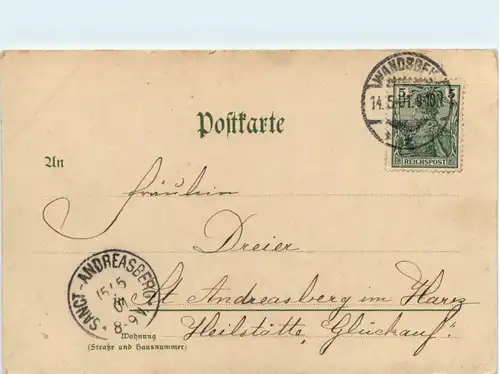 WANDSBEK
14.5.01.9-10N
5 5
REICHSPOST
Postkarte
An
Fräulein
Dreier
St Andreasberg im Harz
Heilstätte „Glückauf“
SANCT-ANDREASBERG
15/5
01
8-9
Wohnung
(Straße und Hausnummer)